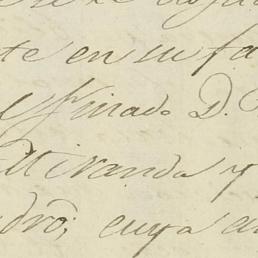 te en su fa
el finado D.
Miranda y
dro; cuya